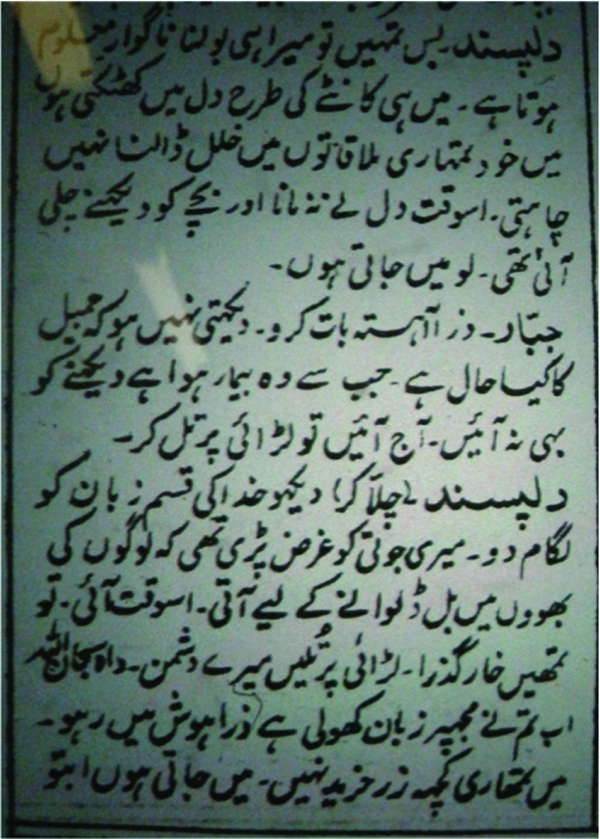 دلپسند۔ بس تمہیں تو میرا ہی بولنا ناگوار معلوم
ہوتا ہے۔ میں ہی کانٹے کی طرح دل میں کھٹکتی ہوں
میں خود تمہاری ملاقاتوں میں خلل ڈالنا نہیں
چاہتی۔ اسوقت دل نے نہ مانا اور بچے کو دیکہنے چلی
آئی تھی۔ لو میں جاتی ہوں۔
جبّار۔ ذرا آہستہ بات کرو۔ دیکہتی نہیں ہو کہ جمیل
کا کیا حال ہے۔ جب سے وہ بیمار ہوا ہے دیکہنے کو
بہی نہ آئیں۔ آج آئیں تو لڑائی پر تل کر۔
دلپسند (چلّا کر) دیکہو خدا کی قسم زبان کو
لگام دو۔ میری جوتی کو غرض پڑی تھی کہ لوگوں کی
بھووں میں بل ڈلوانے کے لیے آتی۔ اسوقت آئی۔ تو
تمھیں خار گذرا۔ لڑائی پر تُلیں میرے دشمن۔ واہ سبحان اللہ
اب تم نے مجہپر زبان کھولی ہے ذرا ہوش میں رہو۔
میں تمھاری کچہہ زر خرید نہیں۔ میں جاتی ہوں ابتو